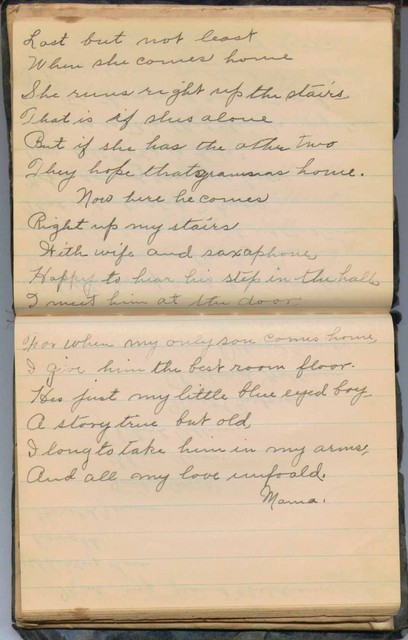 Last but not least
When she comes home
She runs right up the stairs
That is if shes alone
But if she has the other two
They hope thats gramas home.
Now here he comes
Right up my stairs
With wife and saxaphone,
Happy to hear his step in the hall
I meet him at the door
For when my only son comes home,
I give him the best room floor.
Hes just my little blue eyed boy
A story true but old,
I long to take him in my arms,
And all my love unfoald.
Mama.